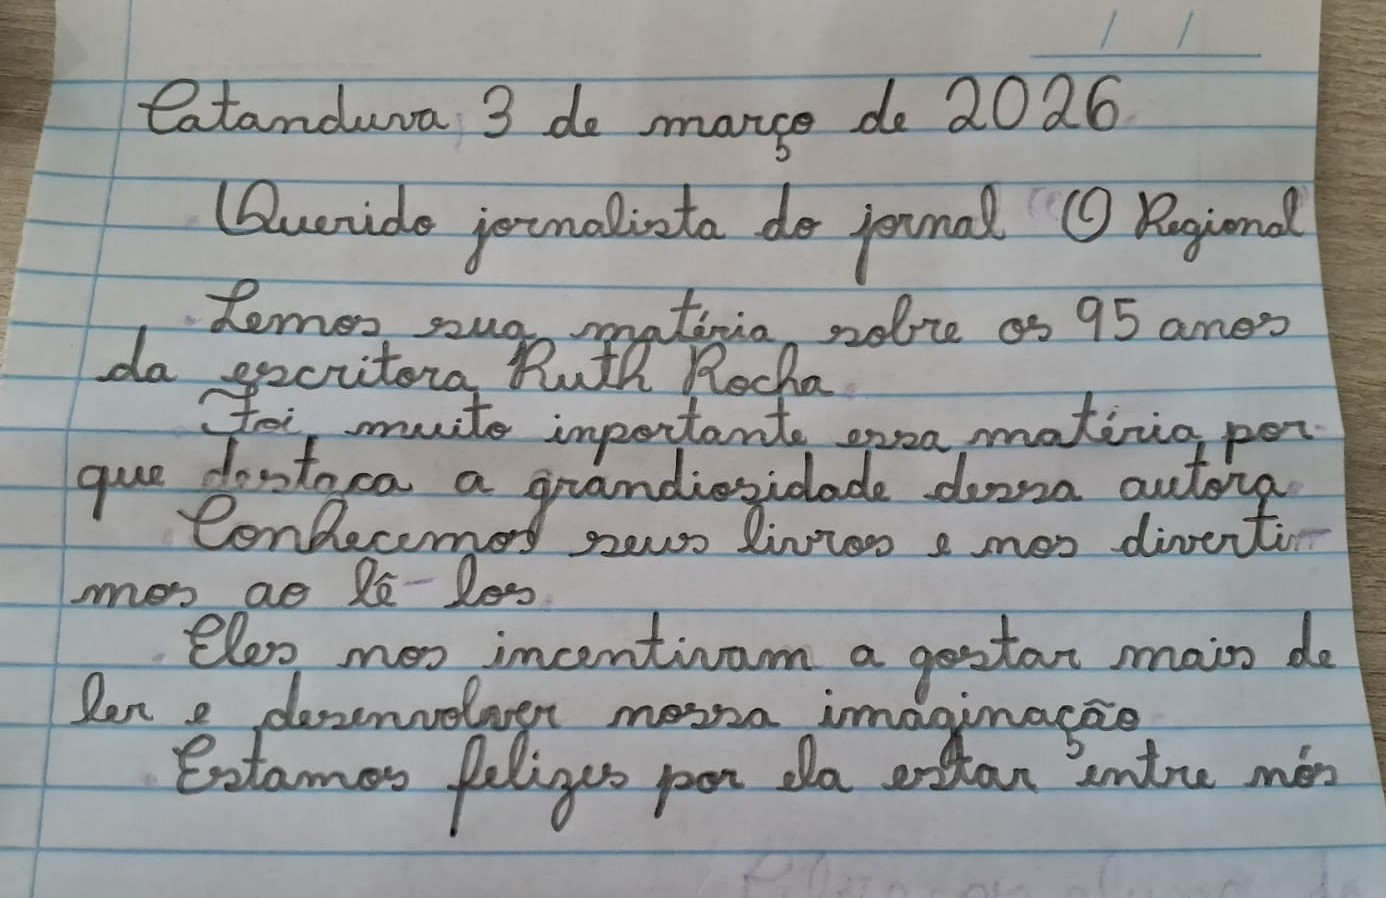 Catanduva, 3 de março de 2026
Querido jornalista do jornal O Regional
Lemos sua matéria sobre os 95 anos
da escritora Ruth Rocha
Foi muito inportante essa matéria, por
que destaca a grandiozidade dessa autora
Conhecemos seus livros e nos diverti
mos ao lê-los
Eles nos incentivam a gostar mais de
ler e desenvolver nossa imaginação
Estamos felizes por ela estar entre nós